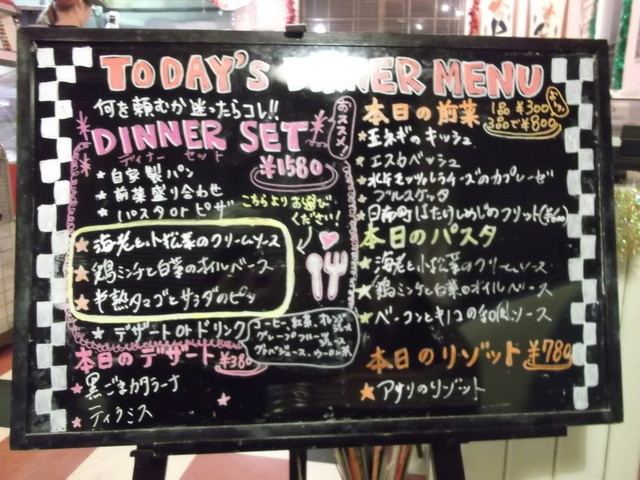 TODAY'S DINNER MENU
何を頼むか迷ったらコレ!!
DINNER SET
ディナー セット
おススメ!
¥1580
★自家製パン
★前菜盛り合わせ
★パスタ or ピザ
こちらよりお選び
ください!
★海老と小松菜のクリームソース
★鶏ミンチと白菜のオイルベース
★半熟タマゴとサラダのピッ
★デザート or ドリンク
コーヒー、紅茶、オレンジ
グレープフルーツ
本日のデザート ¥380
★黒ごまカタラーナ
★ティラミス
本日の前菜 1品 ¥300
3品で¥800
★玉ネギのキッシュ
★エスカベッシュ
★水牛モッツァレラチーズのカプレーゼ
★ブルスケッタ
はたけしめじのフリット
本日のパスタ
★海老と小松菜のクリームソース
★鶏ミンチと白菜のオイルベース
★ベーコンとキノコの和風ソース
本日のリゾット ¥780
★アサリのリゾット